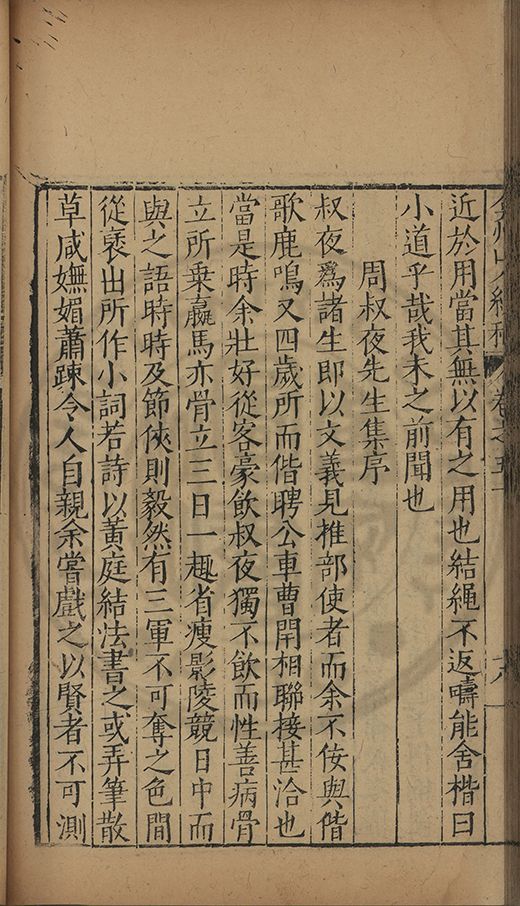 近於用當其無以有之用也結繩不返疇能舍楷曰
小道乎哉我未之前聞也
周叔夜先生集序
叔夜爲諸生即以文義見推部使者而余不佞與偕
歌鹿鳴又四歲所而偕聘公車曹閈相聯接甚洽也
當是時余壯好從客豪飲叔夜獨不飲而性善病骨
立所乗羸馬亦骨立三日一趣省瘦影陵競日中而
與之語時時及節俠則毅然有三軍不可奪之色間
從裒出所作小詞若詩以黃庭結法書之或弄筆散
草咸嫵媚蕭踈令人自親余嘗戲之以賢者不可測